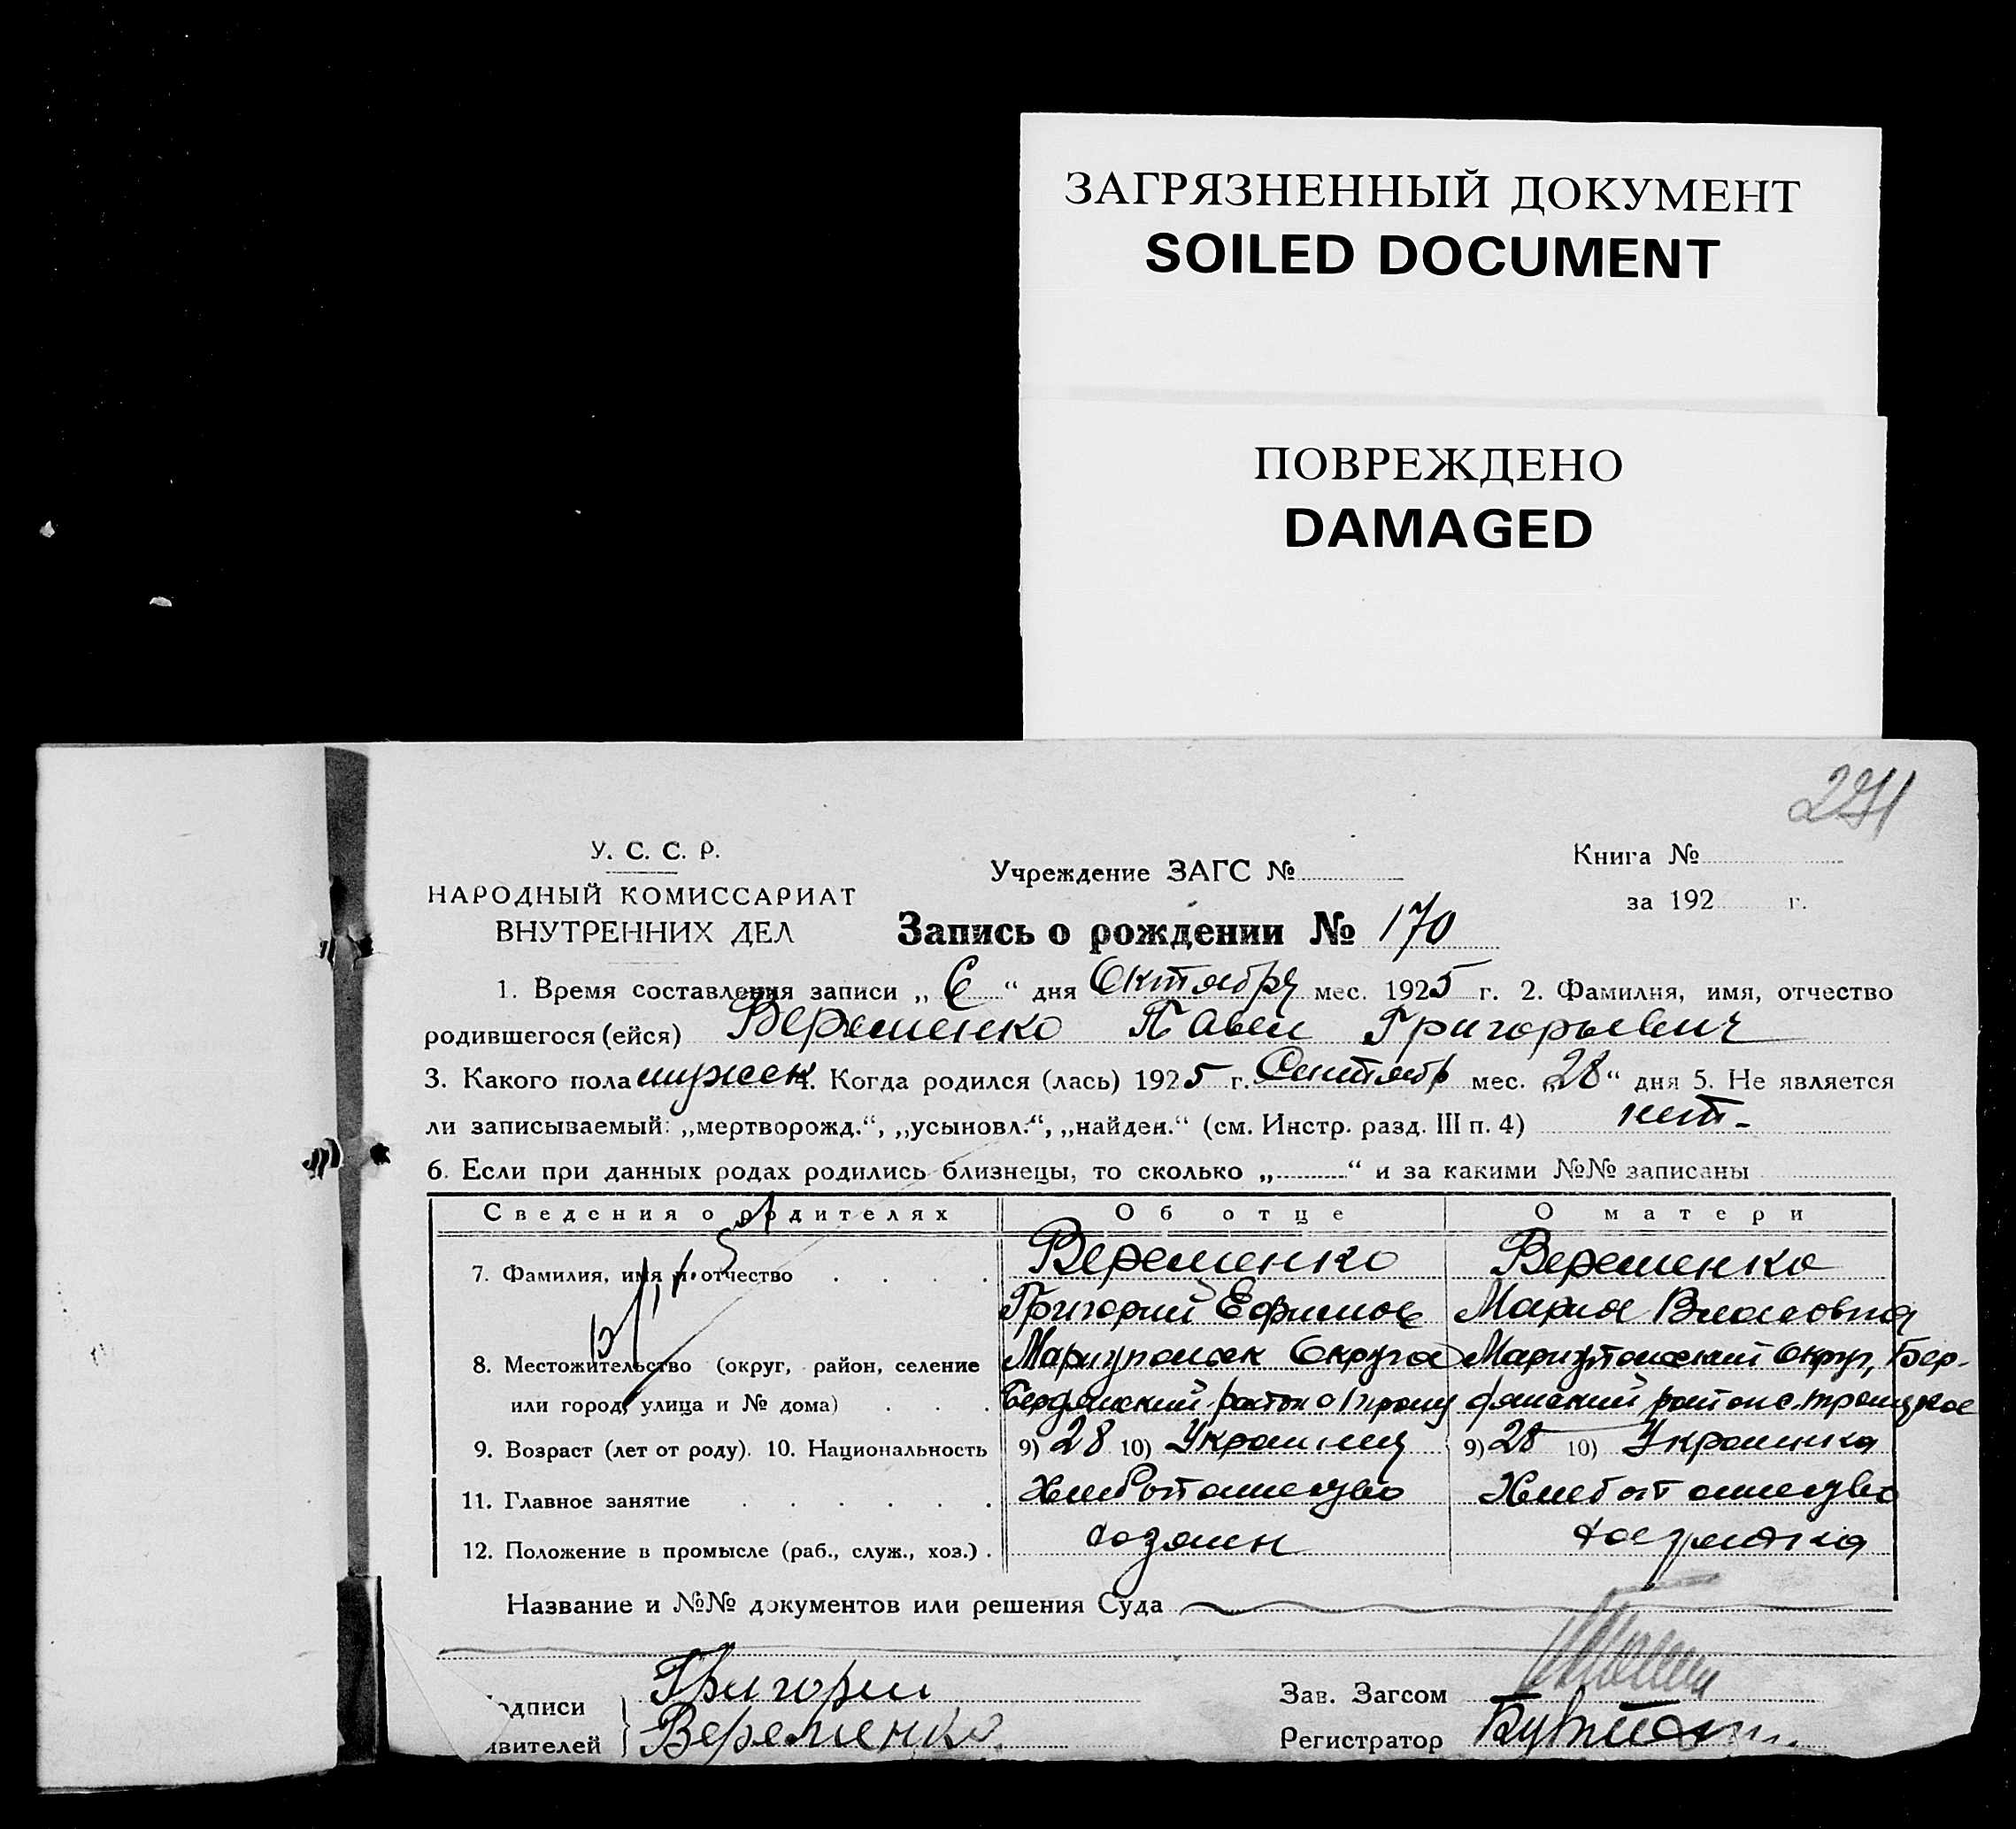 ЗАГРЯЗНЕННЫЙ ДОКУМЕНТ
SOILED DOCUMENT
ПОВРЕЖДЕНО
DAMAGED
У. С. С. Р.
НАРОДНЫЙ КОМИССАРИАТ
ВНУТРЕННИХ ДЕЛ
Учреждение ЗАГС №
Книга №
за 192 г.
Запись о рождении № 170
1. Время составления записи „ 6 “ дня Октября мес. 1925 г. 2. Фамилия, имя, отчество
родившегося (ейся) Веременко Павел Григорьевич
3. Какого пола мужск 4. Когда родился (лась) 1925 г. Сентябр мес. „28“ дня 5. Не является
ли записываемый: „мертворожд.“, „усыновл.“, „найден.“ (см. Инстр. разд. III п. 4) нет.
6. Если при данных родах родились близнецы, то сколько „ “ и за какими №№ записаны
Сведения о родителях Об отце О матери
7. Фамилия, имя и отчество Веременко Веременко
Григорий Ефимов Мария Власовна
8. Местожительство (округ, район, селение Мариупольск Округа Мариупольский Округ, Бер-
или город, улица и № дома) Бердянский район дянский район с. Троицкое
9. Возраст (лет от роду). 10. Национальность 9) 28 10) Украинец 9) 28 10) Украинка
11. Главное занятие Хлебопашество Хлебопашество
12. Положение в промысле (раб., служ., хоз.) хозяин хозяйка
Название и №№ документов или решения Суда
одписи Григорий
явителей Веременко.
Зав. Загсом
Регистратор